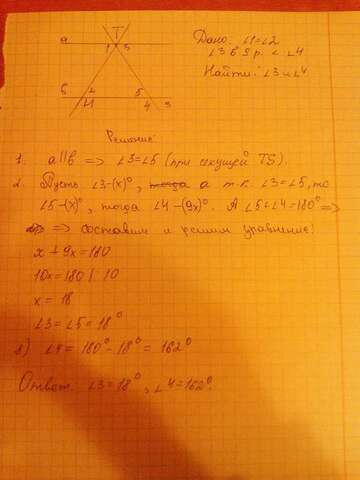 T
a
1 3
Дано: ∠1=∠2
∠3 в 9 р. < ∠4
Найти: ∠3 и ∠4
b
2
5
4
S
Решение:
1. a||b => ∠3=∠5 (при секущей TS).
2. Пусть ∠3-(x)°, тогда а т.к. ∠3=∠5, то
∠5-(x)°, тогда ∠4-(9x)°. А ∠5+∠4=180° =>
=> составим и решим уравнение:
x + 9x = 180
10x = 180 | 10
x = 18
∠3 = ∠5 = 18°
3) ∠4 = 180° - 18° = 162°
Ответ: ∠3=18°, ∠4=162°.